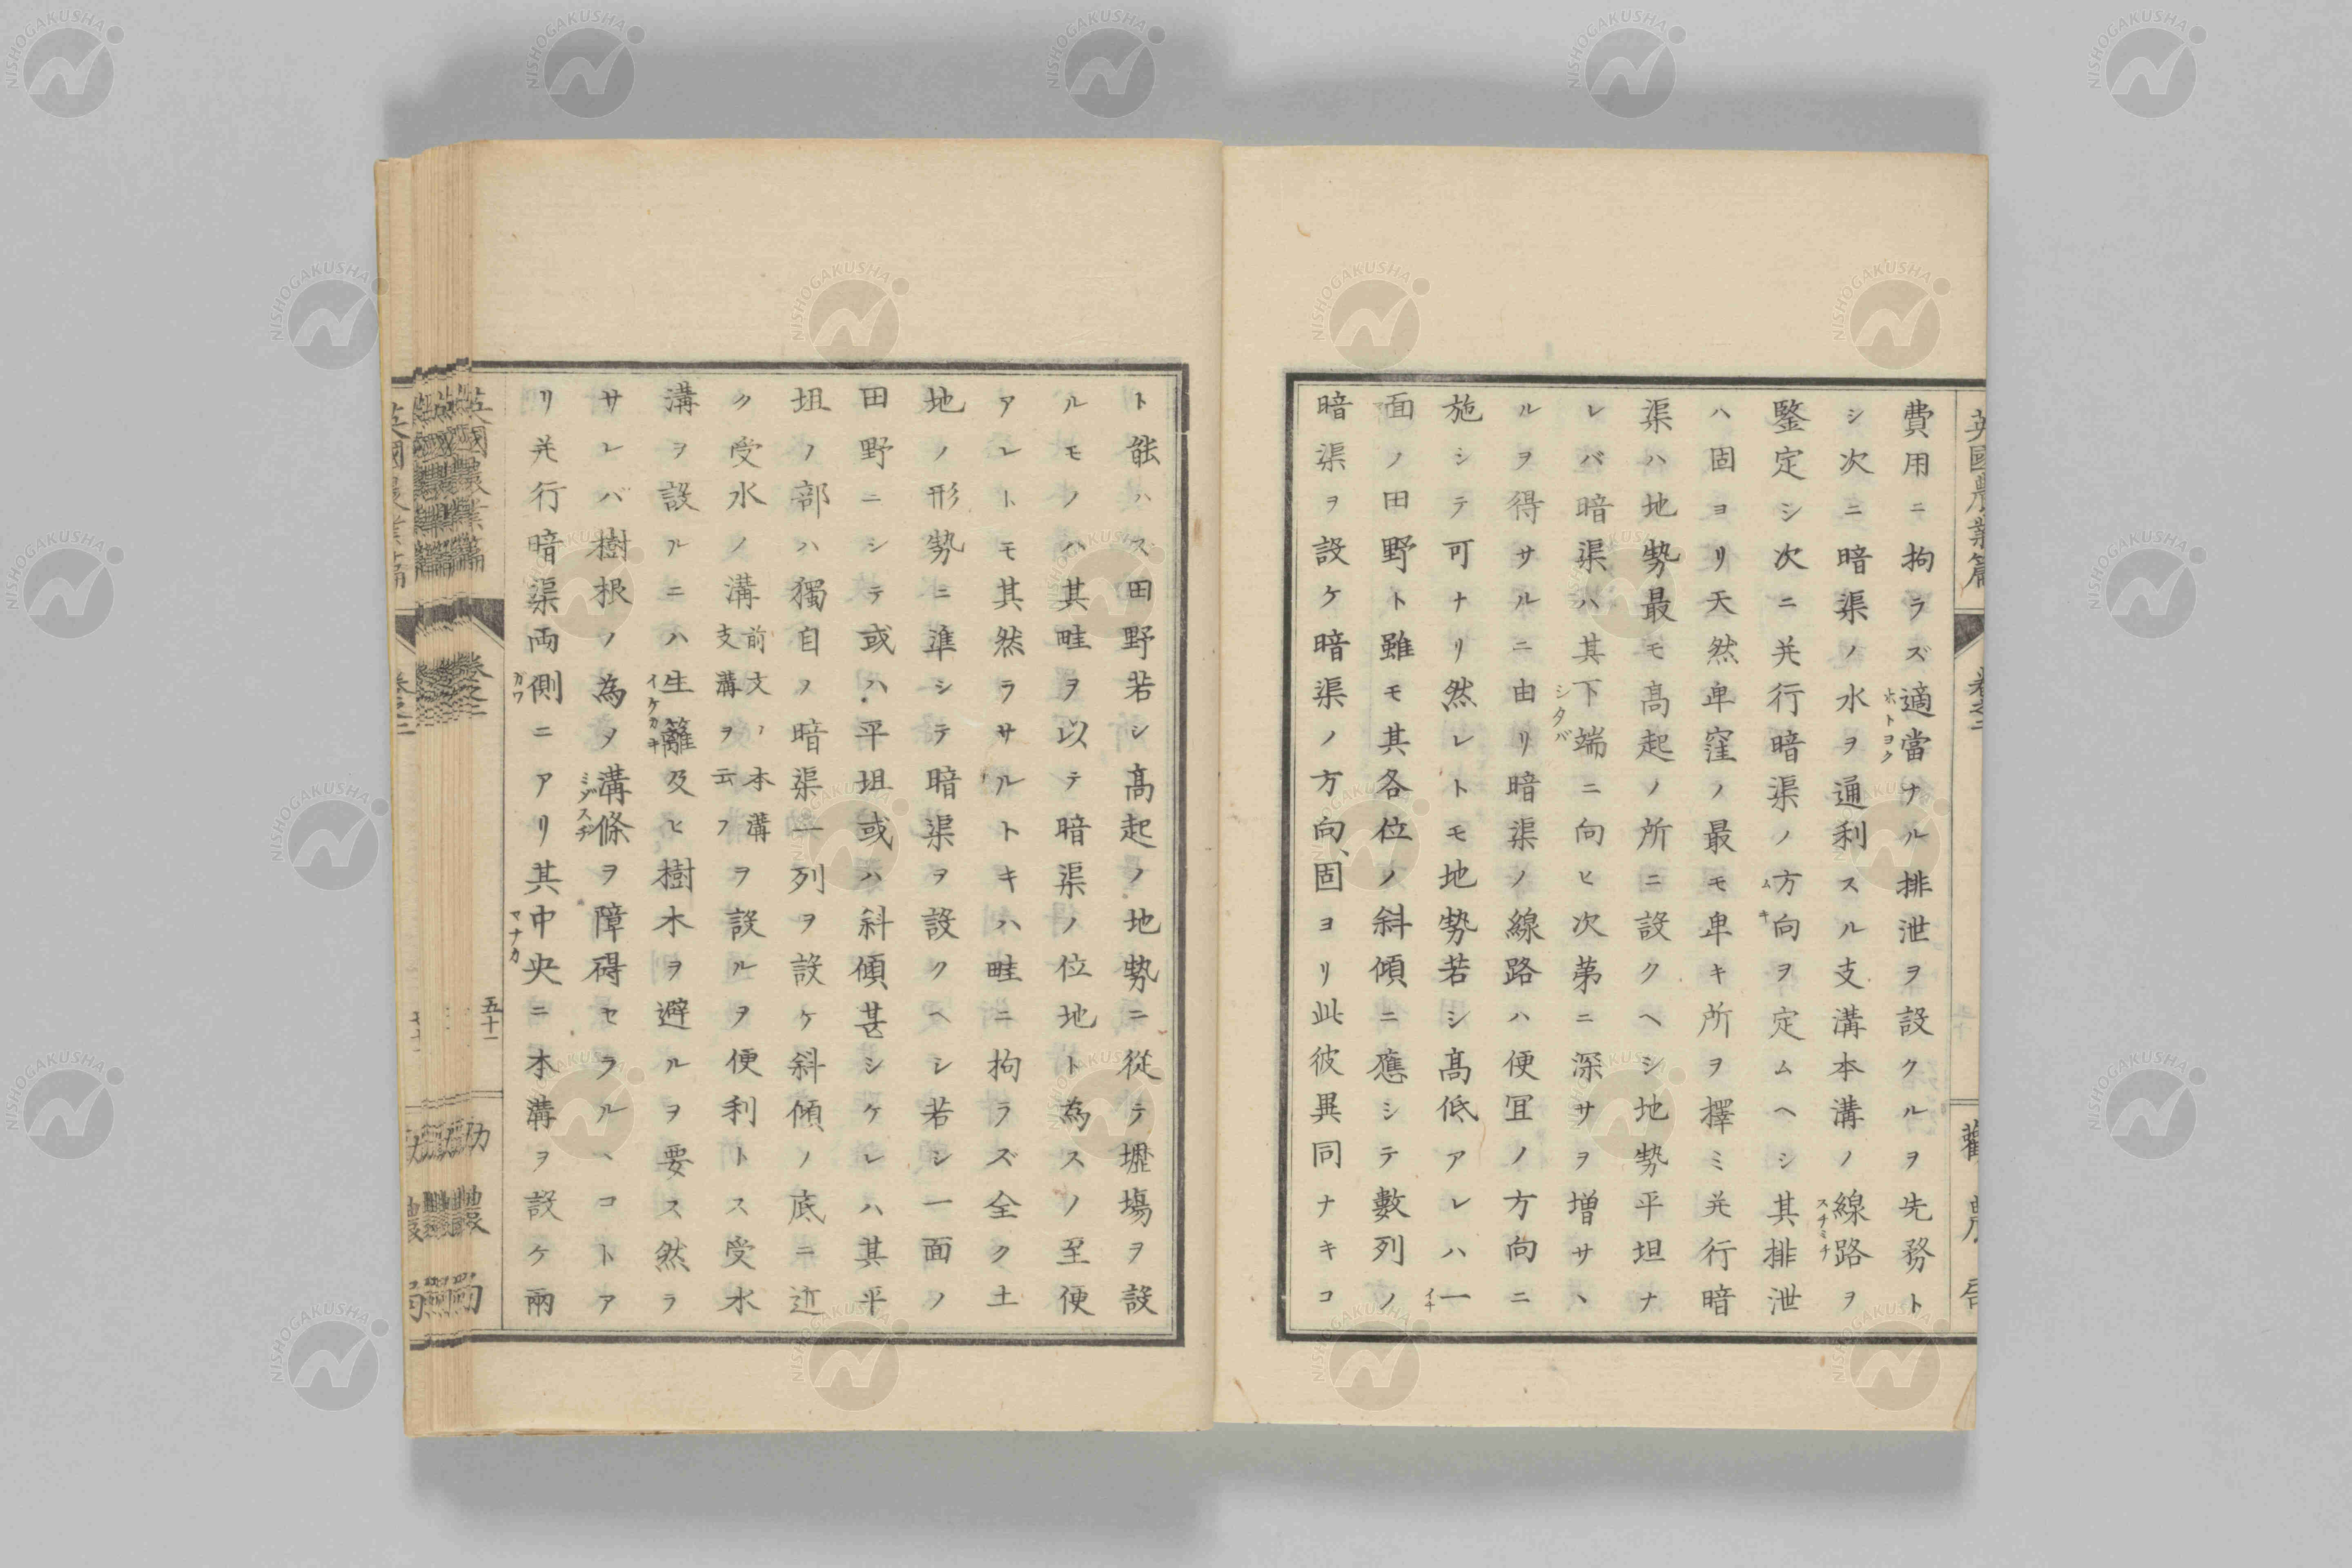 英國農業篇
卷之二
勸農局
費用ニ拘ラズ適當ナル排泄ヲ設クルヲ先務ト
ホトヨク
シ次ニ暗渠ノ水ヲ通利スル支溝本溝ノ線路ヲ
スチミチ
鑒定シ次ニ并行暗渠ノ方向ヲ定ムヘシ其排泄
ムキ
ハ固ヨリ天然卑窪ノ最モ卑キ所ヲ擇ミ并行暗
渠ハ地勢最モ髙起ノ所ニ設クヘシ地勢平坦ナ
レバ暗渠ハ其下端ニ向ヒ次第ニ深サヲ増サヽ
シタバ
ルヲ得サルニ由リ暗渠ノ線路ハ便冝ノ方向ニ
施シテ可ナリ然レトモ地勢若シ髙低アレハ一
イチ
面ノ田野ト雖モ其各位ノ斜傾ニ應シテ數列ノ
暗渠ヲ設ケ暗渠ノ方向、固ヨリ此彼異同ナキコ
ト能ハズ田野若シ髙起ノ地勢ニ從テ壢塲ヲ設
ルモノハ其畦ヲ以テ暗渠ノ位地ト為スノ至便
アレトモ其然ラサルトキハ畦ニ拘ラズ全ク土
地ノ形勢ニ準シテ暗渠ヲ設クヘシ若シ一面ノ
田野ニシテ或ハ平坦或ハ斜傾甚シケレハ其平
坦ノ部ハ獨自ノ暗渠一列ヲ設ケ斜傾ノ底ニ近
ク受水ノ溝前文ノ本溝支溝ヲ云フヲ設ルヲ便利トス受水
溝ヲ設ルニハ生籬及ヒ樹木ヲ避ルヲ要ス然ラ
イケカキ
サレバ樹根ノ為メ溝條ヲ障碍セラルヽコトア
ミゾスヂ
リ并行暗渠両側ニアリ其中央ニ本溝ヲ設ケ兩
カワ
マナカ
英國農業篇
卷之二
五十一
勸農局